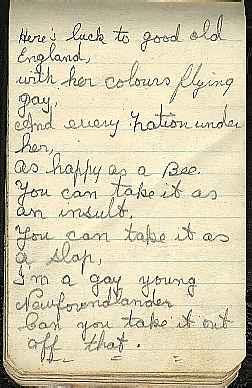 Here's luck to good old
England,
with her colours flying
gay,
And every nation under
her,
as happy as a Bee.
You can take it as
an insult,
You can take it as
a slap,
I'm a gay young
Newfoundlander
Can you take it out
off that.